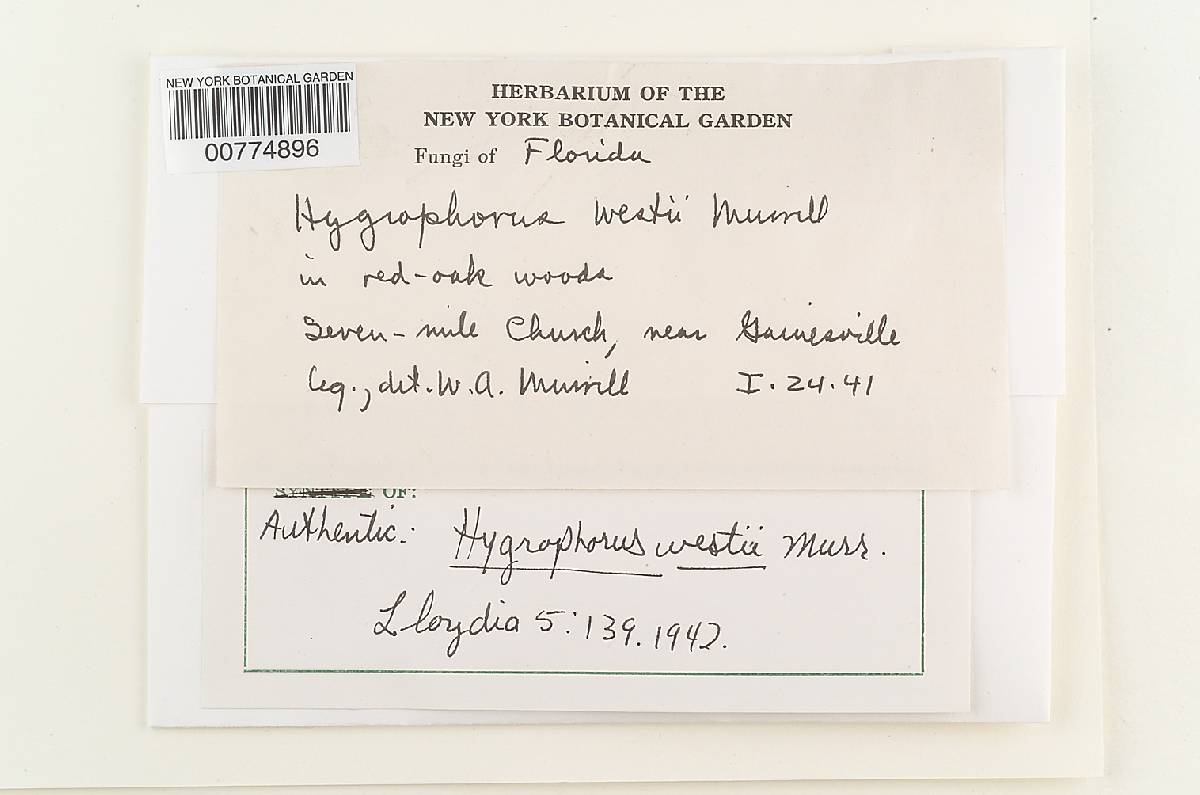 NEW YORK BOTANICAL GARDEN
00774896
HERBARIUM OF THE
NEW YORK BOTANICAL GARDEN
Fungi of Florida
Hygrophorus westii Murrill
in red-oak woods
Seven-mile Church, near Gainesville
leg., det. W. A. Murrill I. 24. 41
OF:
Authentic: Hygrophorus westii Murr.
Lloydia 5: 139. 1942.